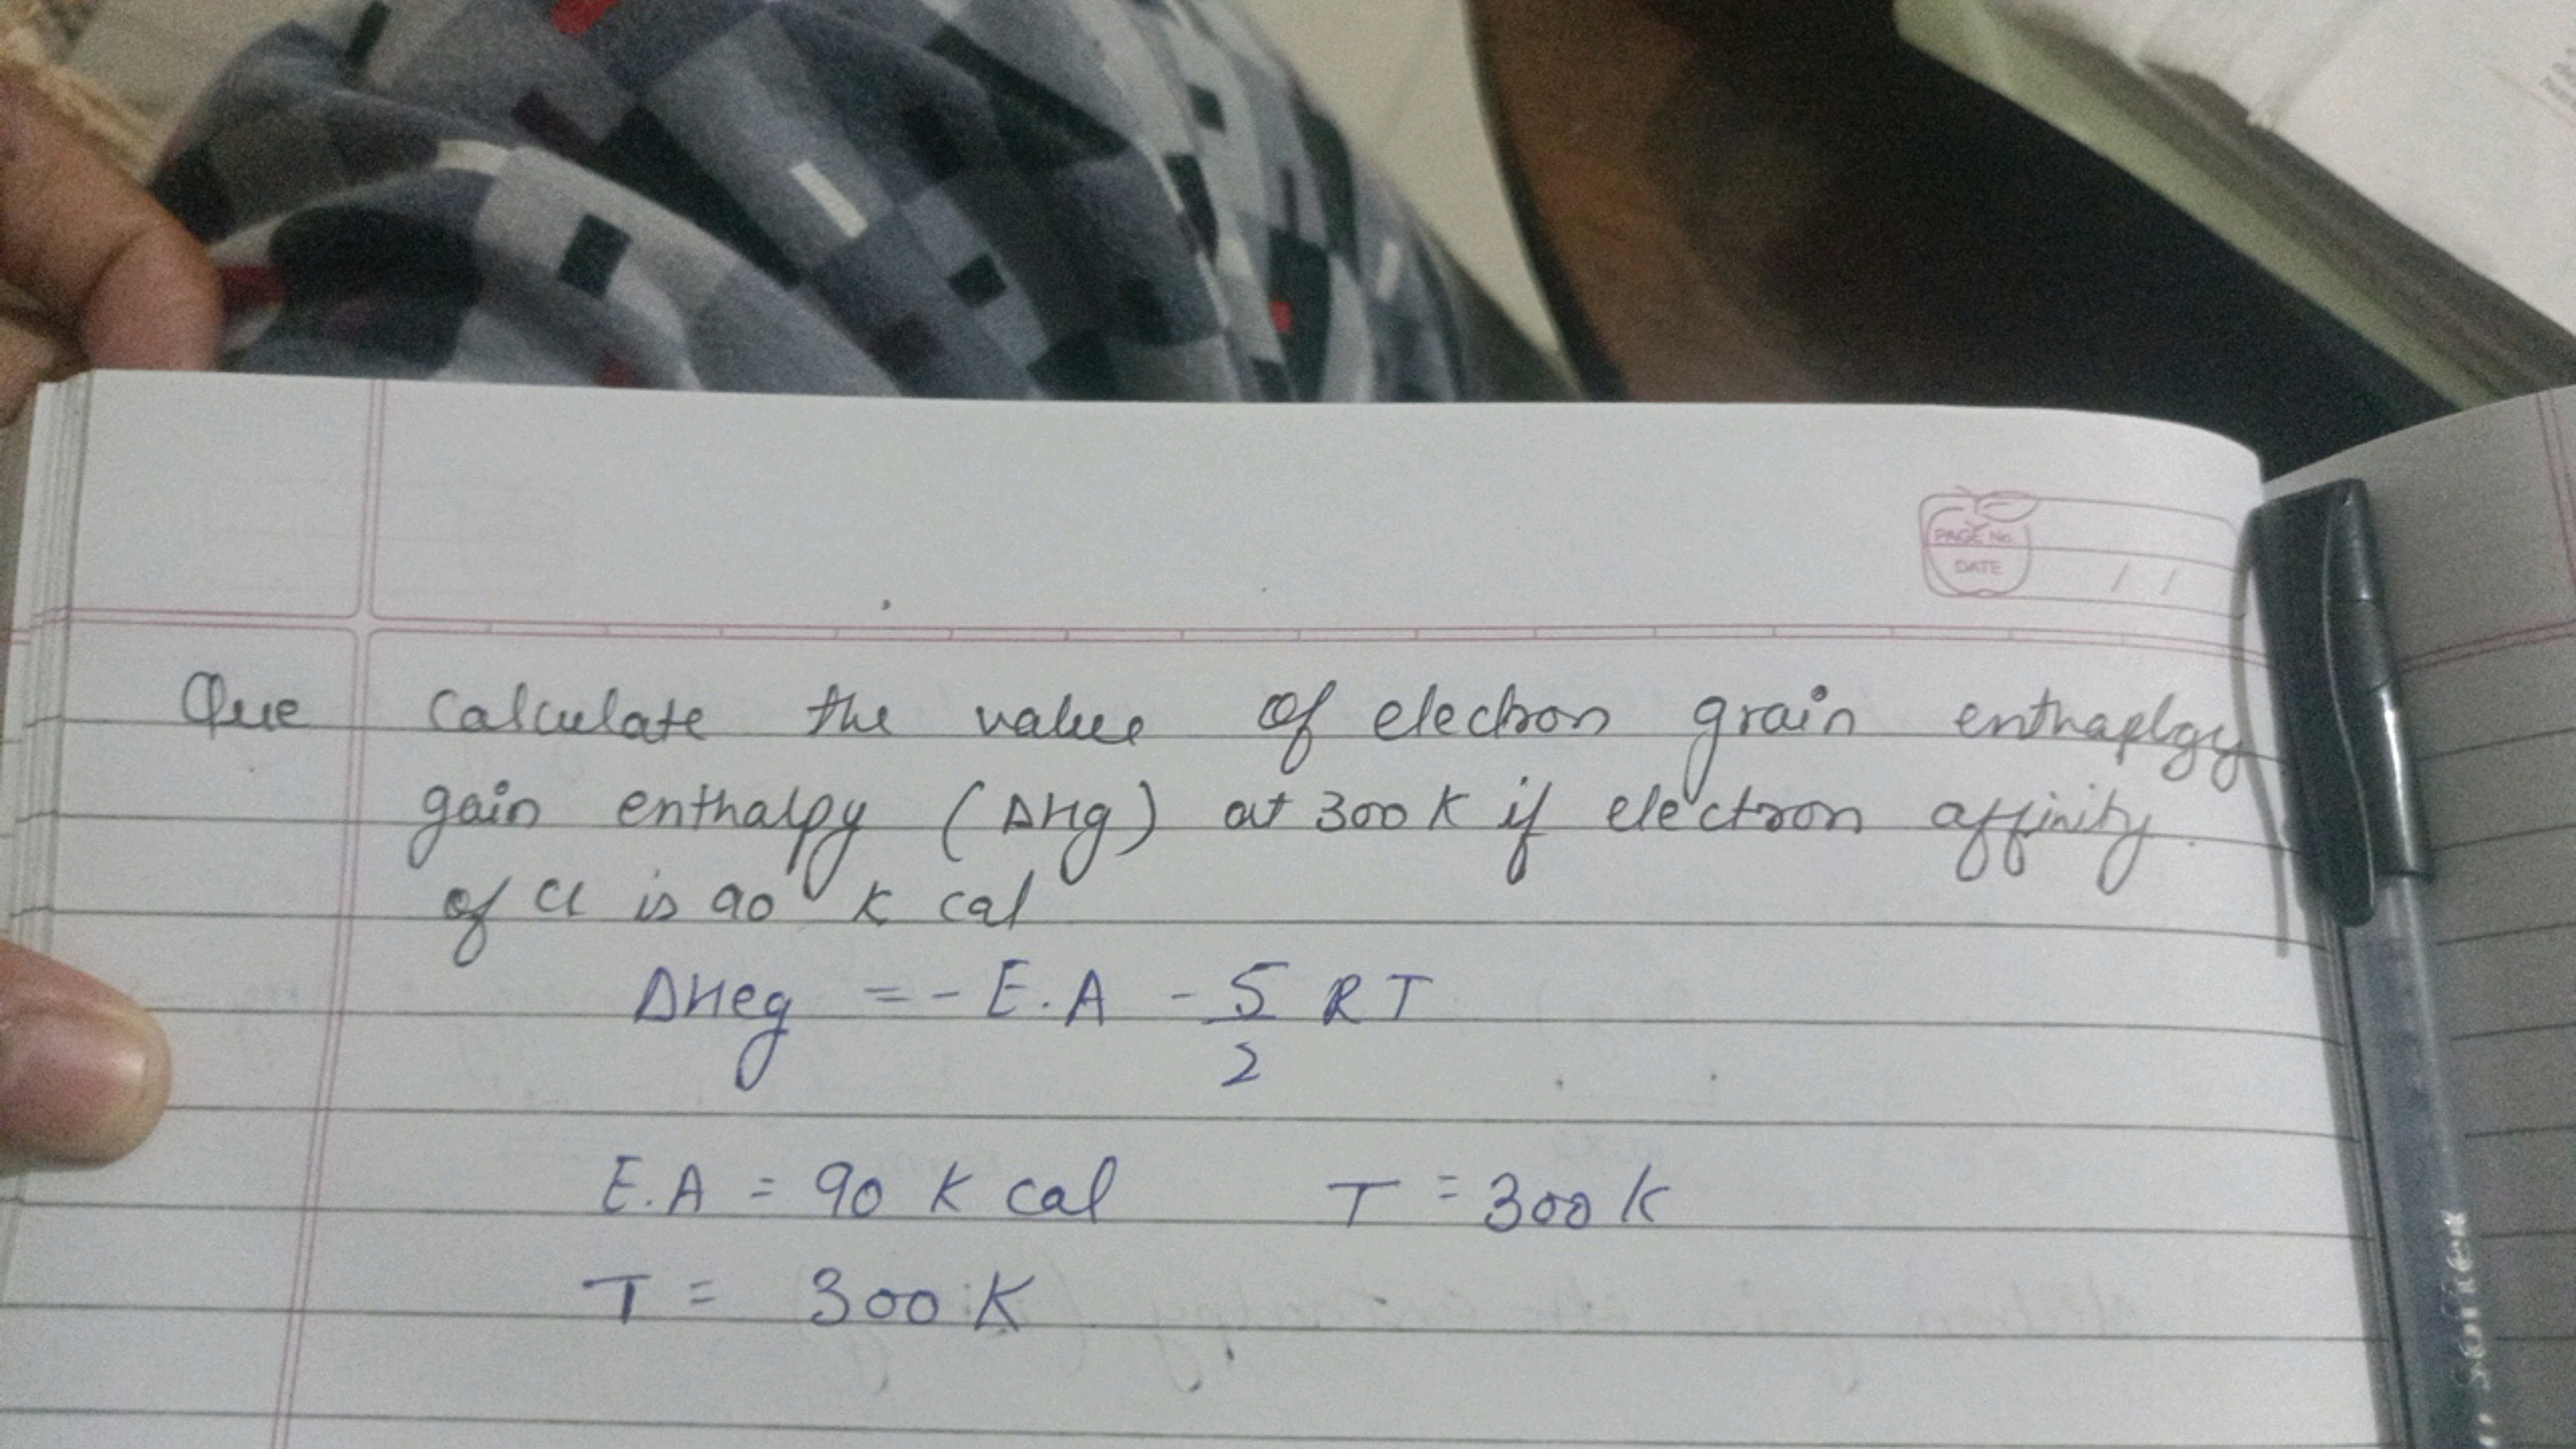 PAGE No.
DATE / /
Que Calculate the value of electron grain enthaplgy
gain enthalpy (ΔHg) at 300 K if electron affinity
of Cl is 90 K cal
ΔHeg = - E.A - 5/2 RT
E.A = 90 K cal T = 300 K
T = 300 K